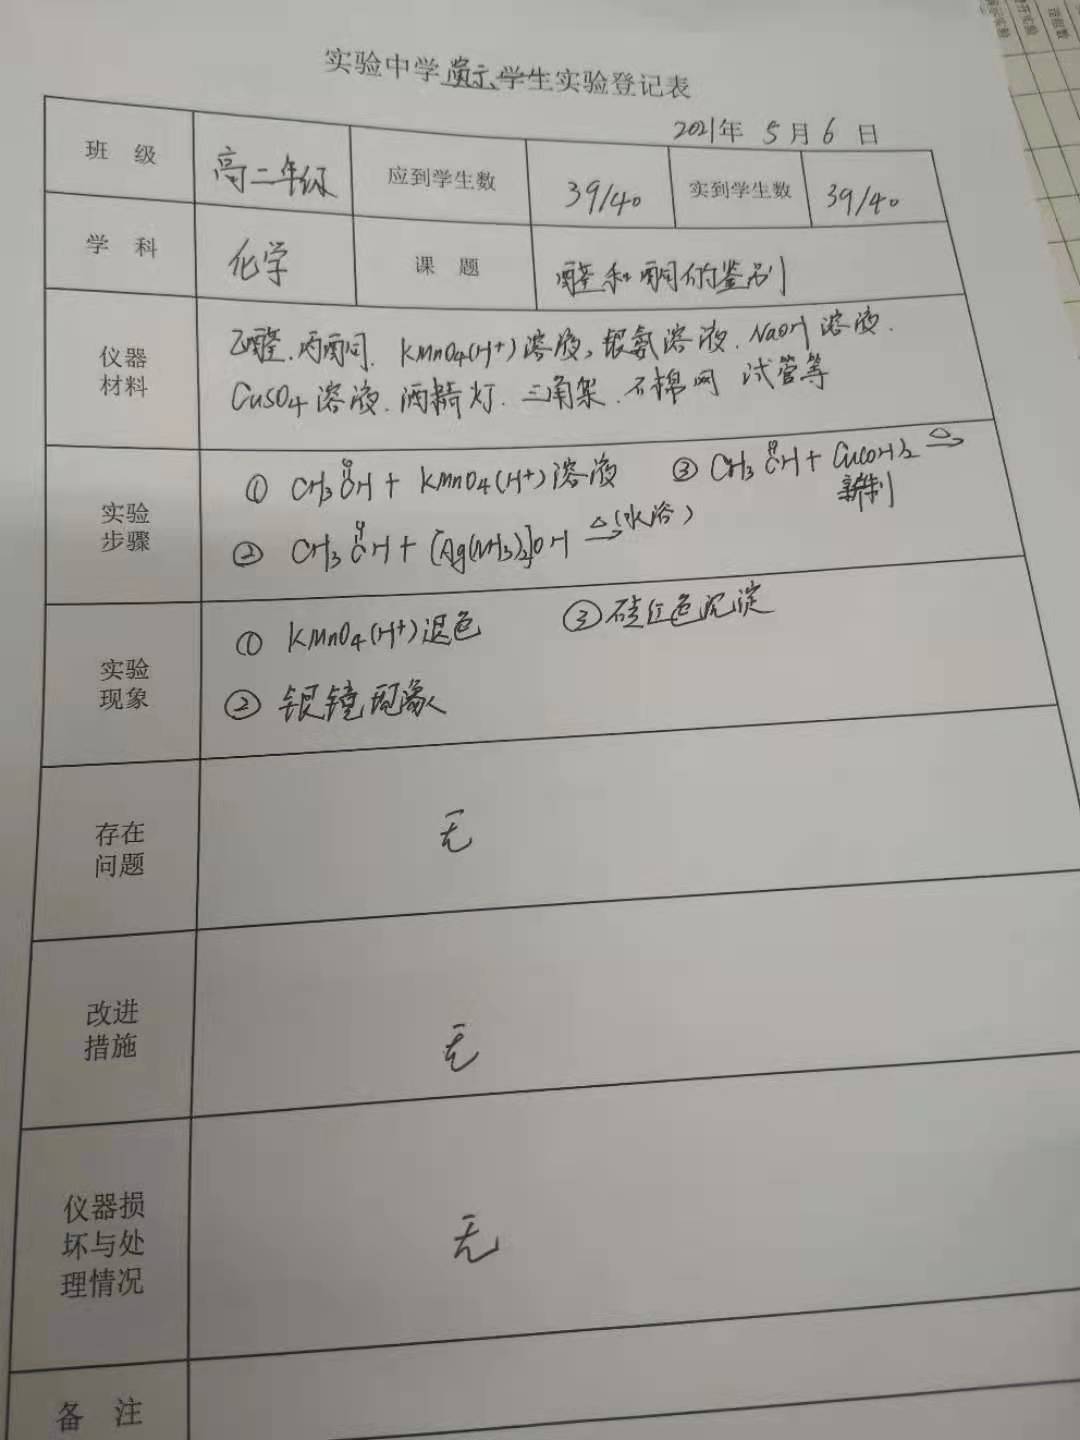 实验中学演示学生实验登记表
2021年 5月 6日
班 级 高二年级 应到学生数 39/40 实到学生数 39/40
学 科 化学 课 题 醛和酮的鉴别
仪器材料
乙醛、丙酮、KMnO4(H+)溶液、银氨溶液、NaOH溶液、
CuSO4溶液、酒精灯、三角架、石棉网 试管等
实验步骤
① CH3CHO + KMnO4(H+)溶液 ③ CH3CHO + Cu(OH)2 △→
新制
② CH3CHO + [Ag(NH3)2]OH △→(水浴)
实验现象
① KMnO4(H+)退色 ③ 砖红色沉淀
② 银镜现象
存在问题
无
改进措施
无
仪器损坏与处理情况
无
备 注